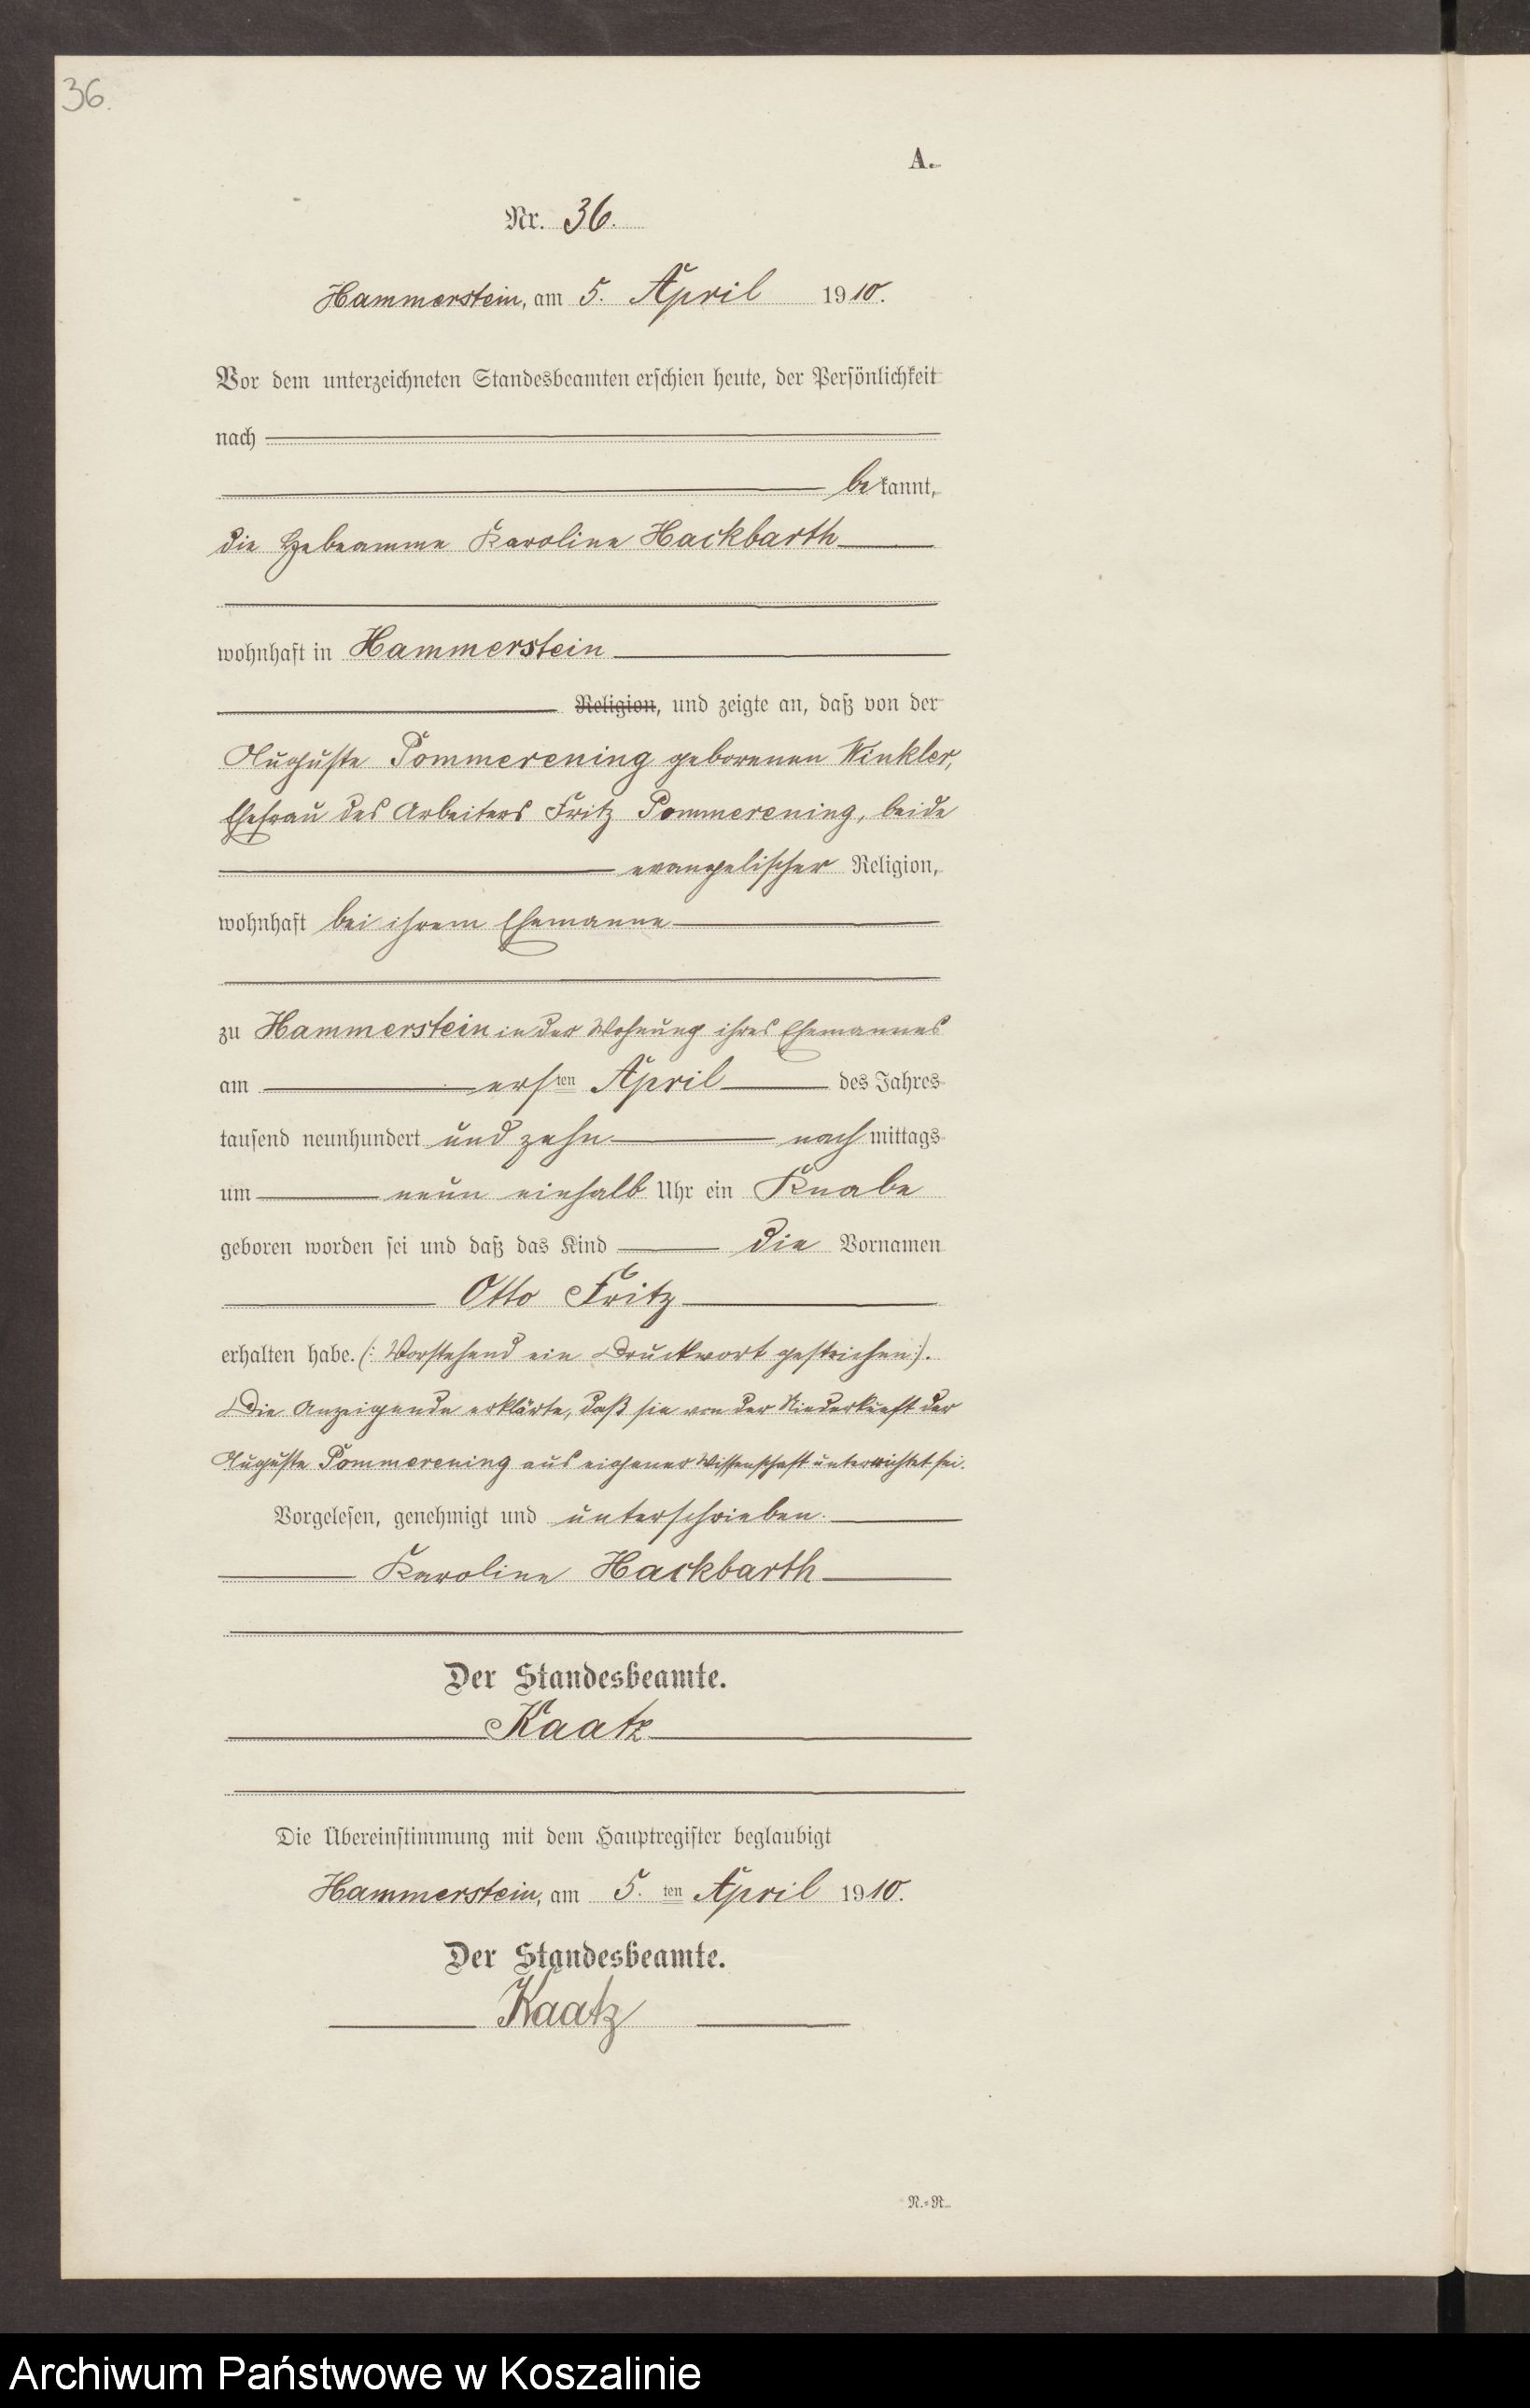 36.
A.
Nr. 36.
Hammerstein, am 5. April 1910.
Vor dem unterzeichneten Standesbeamten erschien heute, der Persönlichkeit
nach
bekannt,
die Hebeamme Karoline Hackbarth
wohnhaft in Hammerstein
Religion, und zeigte an, daß von der
Auguste Pommerening geborenen Winkler,
Ehefrau des Arbeiters Fritz Pommerening, beide
evangelischer Religion,
wohnhaft bei ihrem Ehemanne
zu Hammerstein in der Wohnung ihres Ehemannes
am ersten April des Jahres
tausend neunhundert und zehn nachmittags
um neun einhalb Uhr ein Knabe
geboren worden sei und daß das Kind die Vornamen
Otto Fritz
erhalten habe. (: Vorstehend ein Druckwort gestrichen :).
Die Anzeigende erklärte, daß sie von der Niederkunft der
Auguste Pommerening aus eigener Wissenschaft unterrichtet sei.
Vorgelesen, genehmigt und unterschrieben.
Karoline Hackbarth
Der Standesbeamte.
Kaatz
Die Übereinstimmung mit dem Hauptregister beglaubigt
Hammerstein, am 5. ten April 1910.
Der Standesbeamte.
Kaatz
N.=R.
Archiwum Państwowe w Koszalinie